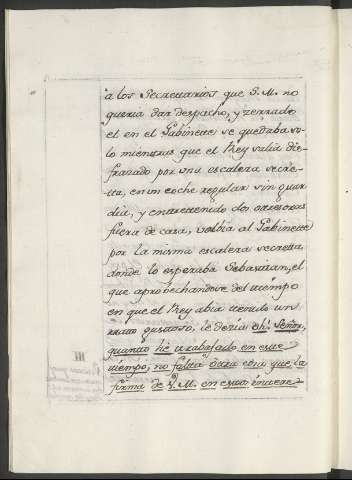 a los Secrettarios que S. M. no
queria dar despacho, y zerrado
el en el Gabinette se quedaba so-
lo mienttras que el Rey salia dis-
frazado por una escalera secre-
tta, en un coche regular sin guar-
dia, y enttrettenido dos o ttres oras
fuera de casa, volbia al Gabinette
por la misma escalera secretta
donde lo esperaba Sebastian, el
que aprobechandose del ttiempo
en que el Rey abia ttenido un
rratto gustoso, le decia oh! Señor,
quantto hè ttrabajado en estte
ttiempo, no faltta ôttra cosa que la
firma de V. M. en esttos